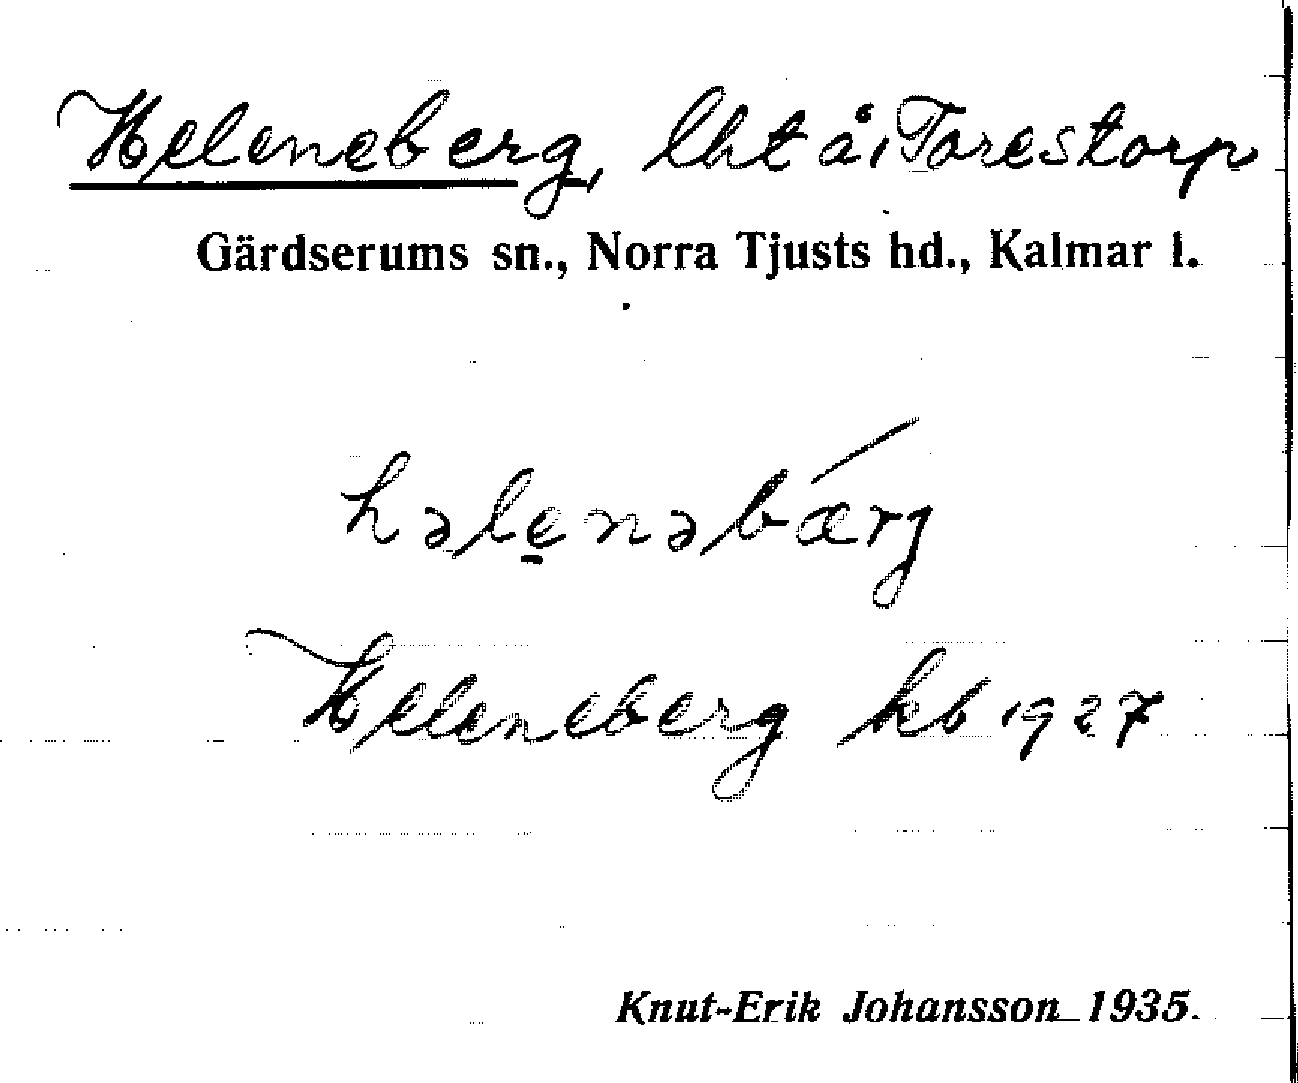 Heleneberg, lht å Torestorp
Gärdserums sn., Norra Tjusts hd., Kalmar l.
həlenəbærg
Heleneberg kb 1927
Knut-Erik Johansson 1935.